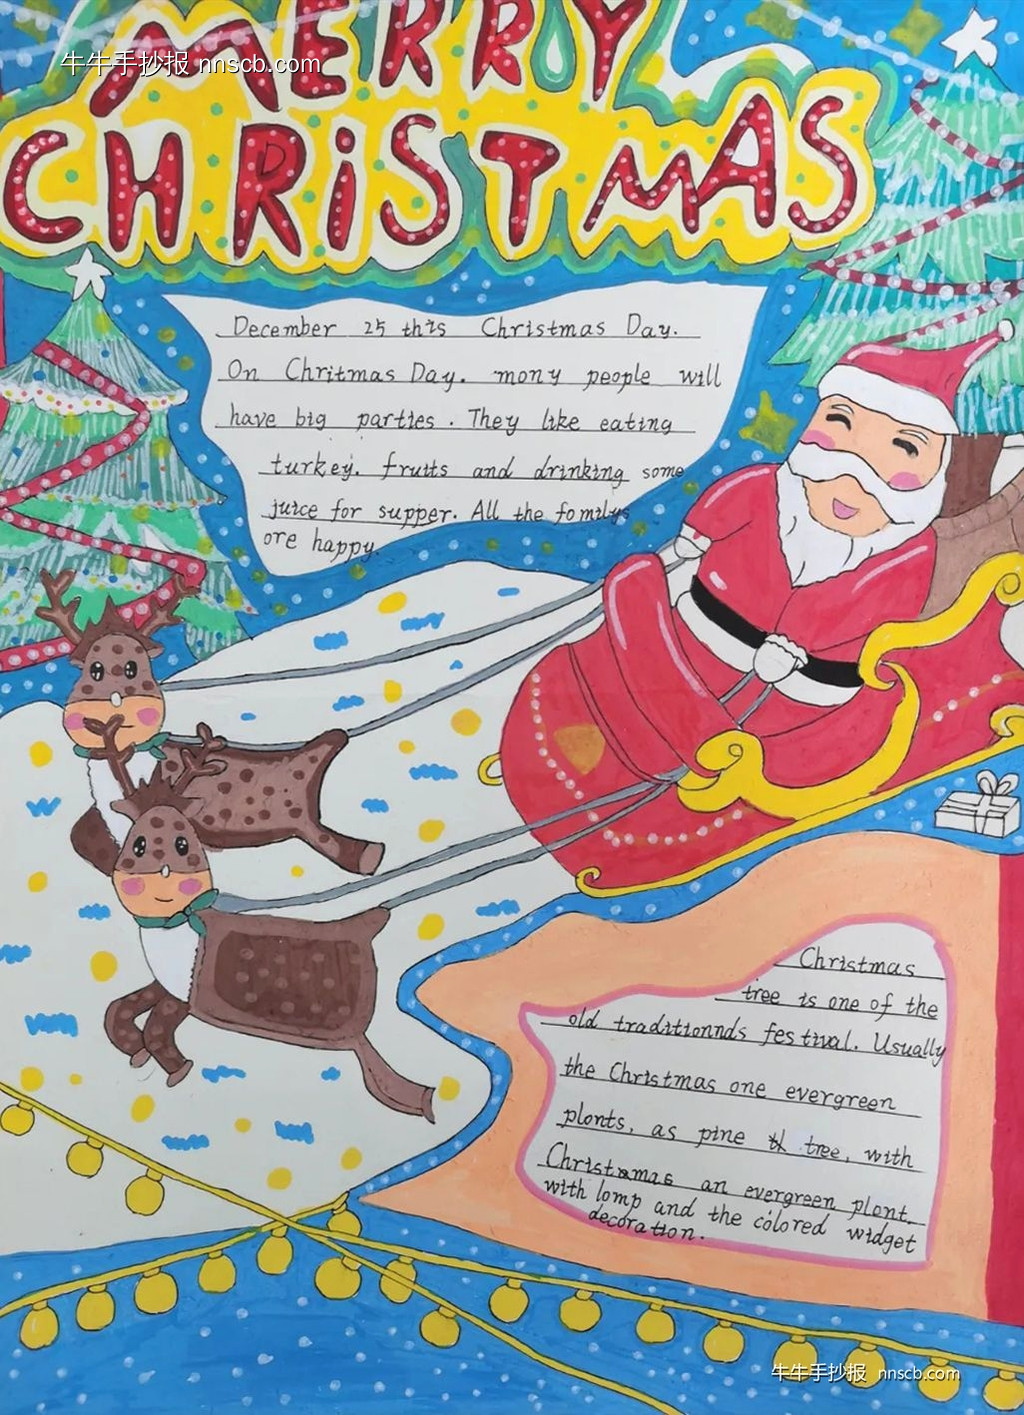 MERRY
牛牛手抄报 nnscb.com
CHRiSTMAS
December 25 this Christmas Day.
On Chritmas Day. mony people will
have big parties. They like eating
turkey. fruits and drinking some
juice for supper. All the fomilys
ore happy.
Christmas
tree is one of the
old traditionnds festival. Usually
the Christmas one evergreen
plonts, as pine tree, with
Christmas an evergreen plont.
with lomp and the colored widget
decoration.
牛牛手抄报 nnscb.com